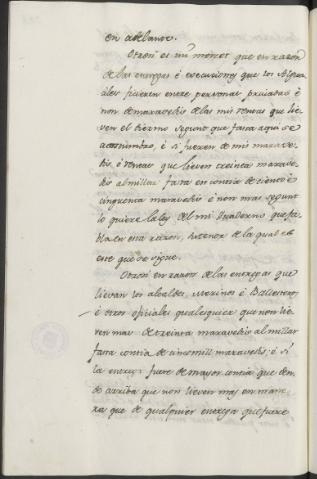 en adelante.
Otrosi es mi merced que en razon
de las entregas é execuciones que los Algua
ciles ficieren entre personas privadas é
non de maravedis de las mis rentas que lie
ven el diezmo segunt que fasta aqui se
acostumbró, é si fueren de mis marave
dis, é rentas que lieven treinta marave
dis al millar fasta en contia de ciento é
cinquenta maravedis é non mas segunt
lo quiere la ley del mi Quaderno que fa
bla en esta razon, el tenor de la qual es
este que se sigue.
Otrosi en razon de las entregas que
llevan los alcaldes, Merinos é Ballesteros,
é otros oficiales qualesquier que non lie
ven mas de treinta maravedis al millar
fasta contia de cinco mill maravedis; é si
la entrega fuere de mayor contia que den
de arriba que non lieven mas en mane
ra que de qualquier entrega que fuere